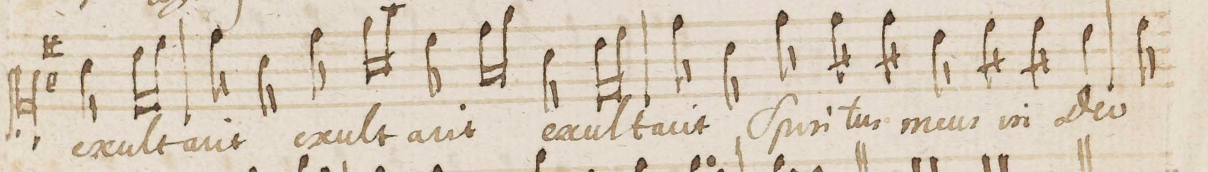 exultavit exultavit exultavit Spiritus meus in Deo